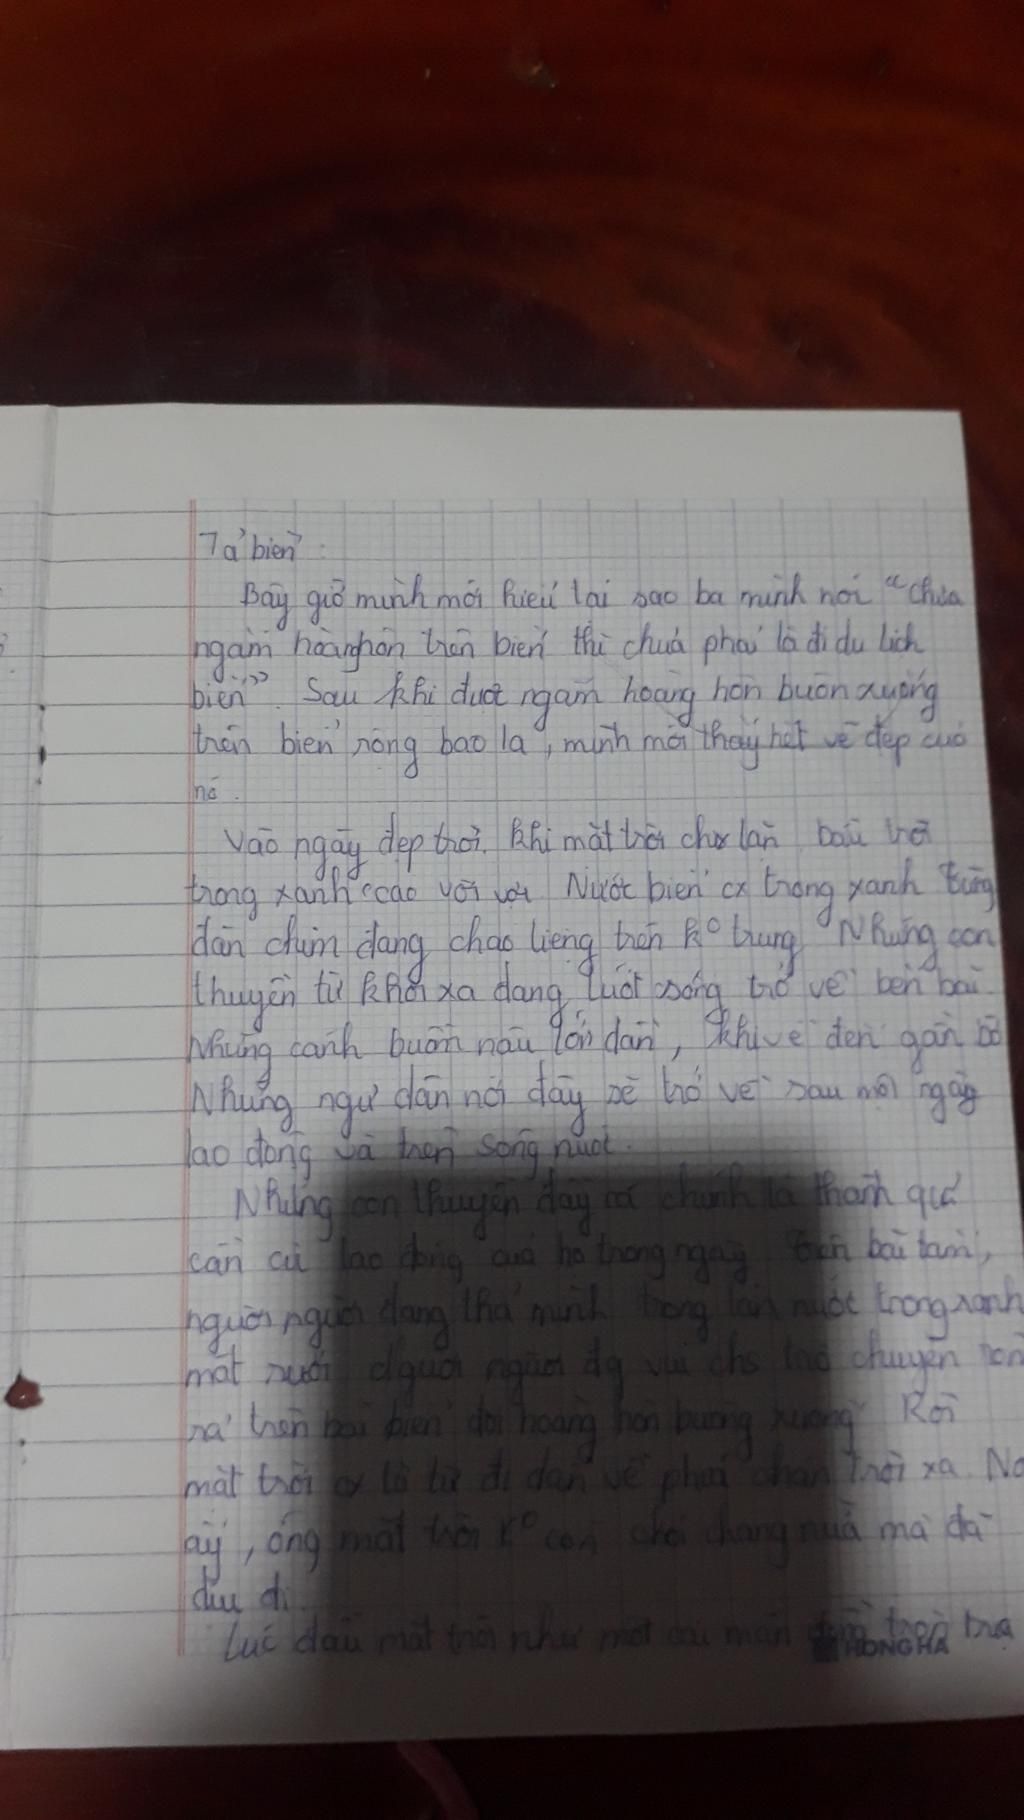 Tả biển:
Bây giờ mình mới hiểu tại sao ba mình nói "chưa
ngắm hoàng hôn trên biển thì chưa phải là đi du lịch
biển". Sau khi được ngắm hoàng hôn buôn xuống
trên biển rộng bao la, mình mới thấy hết vẻ đẹp của
nó.
Vào ngày đẹp trời. Khi mặt trời chưa lặn bầu trời
trong xanh cao vời vợi Nước biển cx trong xanh từng
đàn chim đang chao liệng trên k° trung Những con
thuyền từ khơi xa đang lướt sóng trở về bến bãi.
Những cánh buồm nâu lớn dần, khi về đến gần bờ
Những ngư dân nơi đây sẽ trở về sau một ngày
lao động vả trên sông nước.
Những con thuyền đầy cá chính là thành quả
cần cù lao động của họ trong ngày Trên bãi tắm,
người người đang thả mình trong làn nước trong xanh
mát rượi người người đg vui chs trò chuyện rôn
rả trên bãi biển đợi hoàng hôn buông xuống Rồi
mặt trời cx từ từ đi dần về phía chân trời xa. No
ấy, ông mặt trời k° còn chói chang nữa mà đã
dịu đi.
Lúc đầu mặt trời như một cái mâm tròn trịa
HONG HA